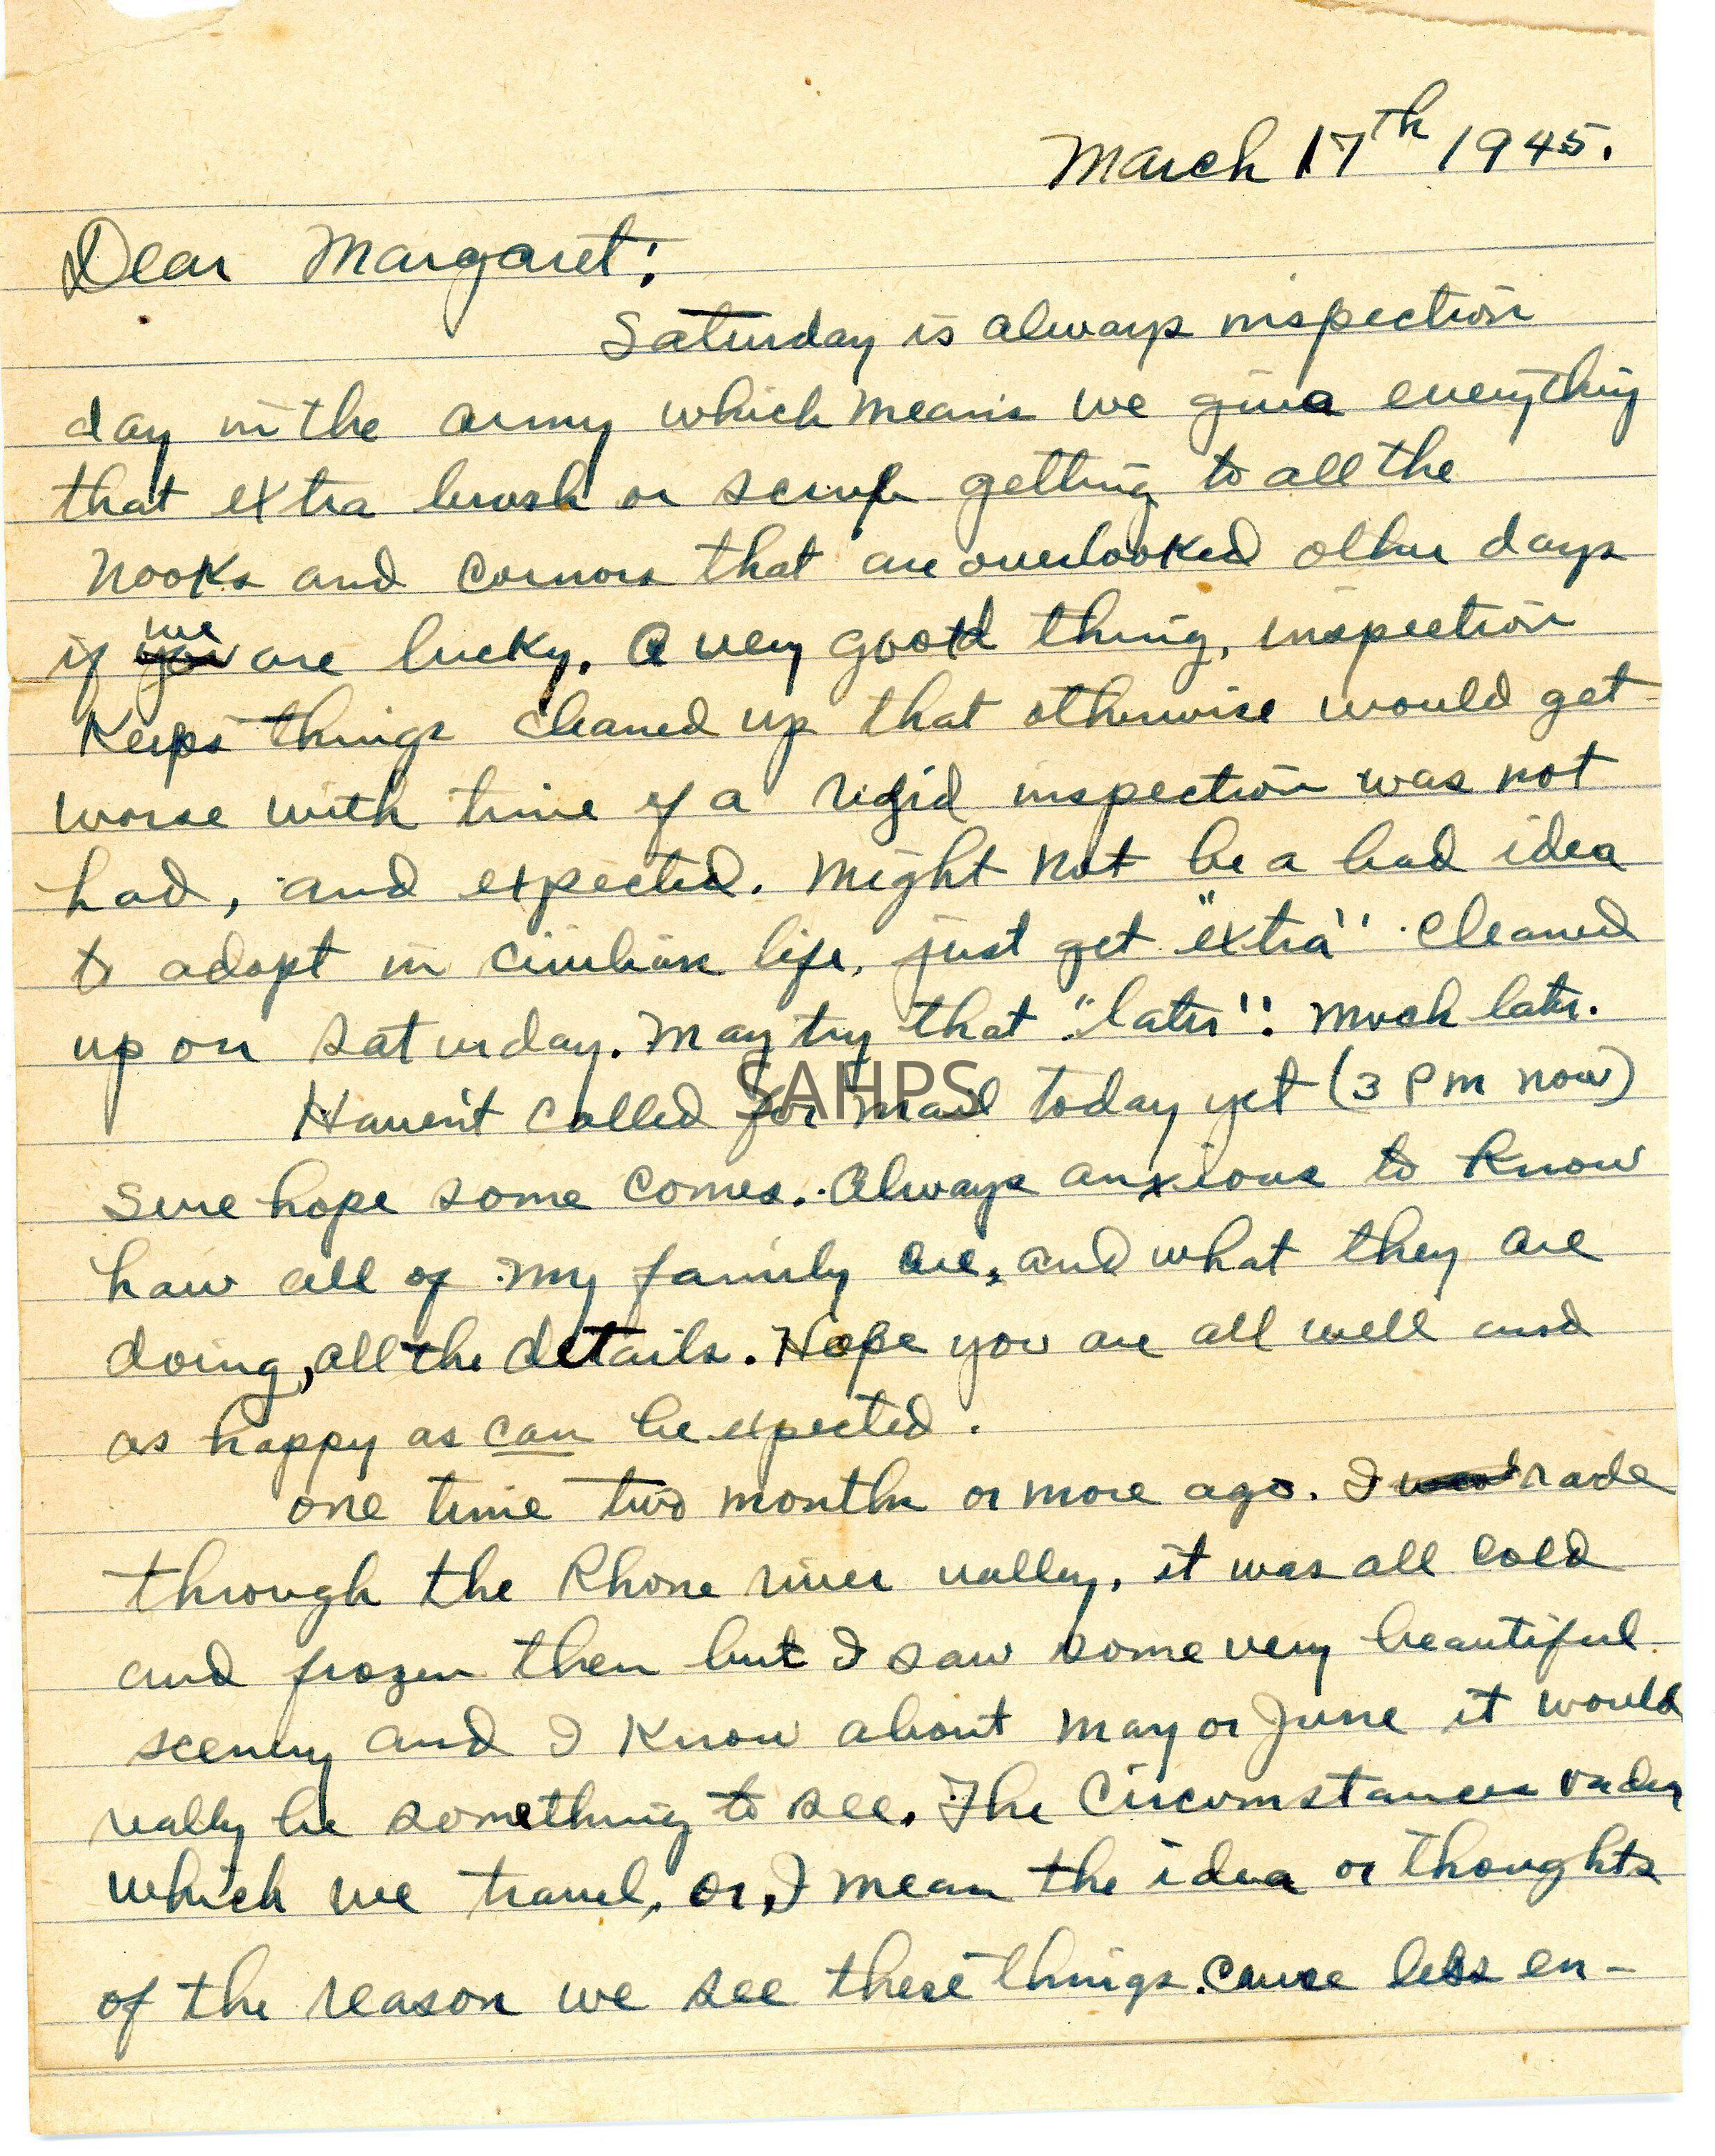 March 17th 1945.
Dear Margaret:
Saturday is always inspection
day in the army which means we give everything
that extra brush or scrub getting to all the
nooks and cornors that are overlooked other days
if we are lucky. A very good thing, inspection
Keeps things cleaned up that otherwise would get
worse with time if a rigid inspection was not
had, and expected. Might not be a bad idea
to adopt in civilian life, just get "extra" cleaned
up on Saturday. May try that "later". Much later.
SAHPS
Haven't called for mail today yet (3 PM now)
Sure hope some comes. Always anxious to know
how all of my family are, and what they are
doing, all the details. Hope you are all well and
as happy as can be expected.
One time two months or more ago. I rode
through the Rhone river valley, it was all cold
and frozen then but I saw some very beautiful
scenery and I know about May or June it would
really be something to see. The circumstances under
which we travel, or, I mean the idea or thoughts
of the reason we see these things cause less en-